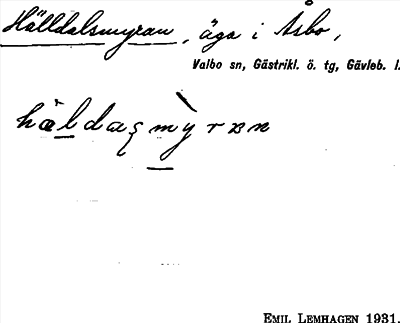 Hälldalsmyran, äga i Åsbo,
Valbo sn, Gästrikl. ö. tg, Gävleb. l.
EMIL LEMHAGEN 1931.